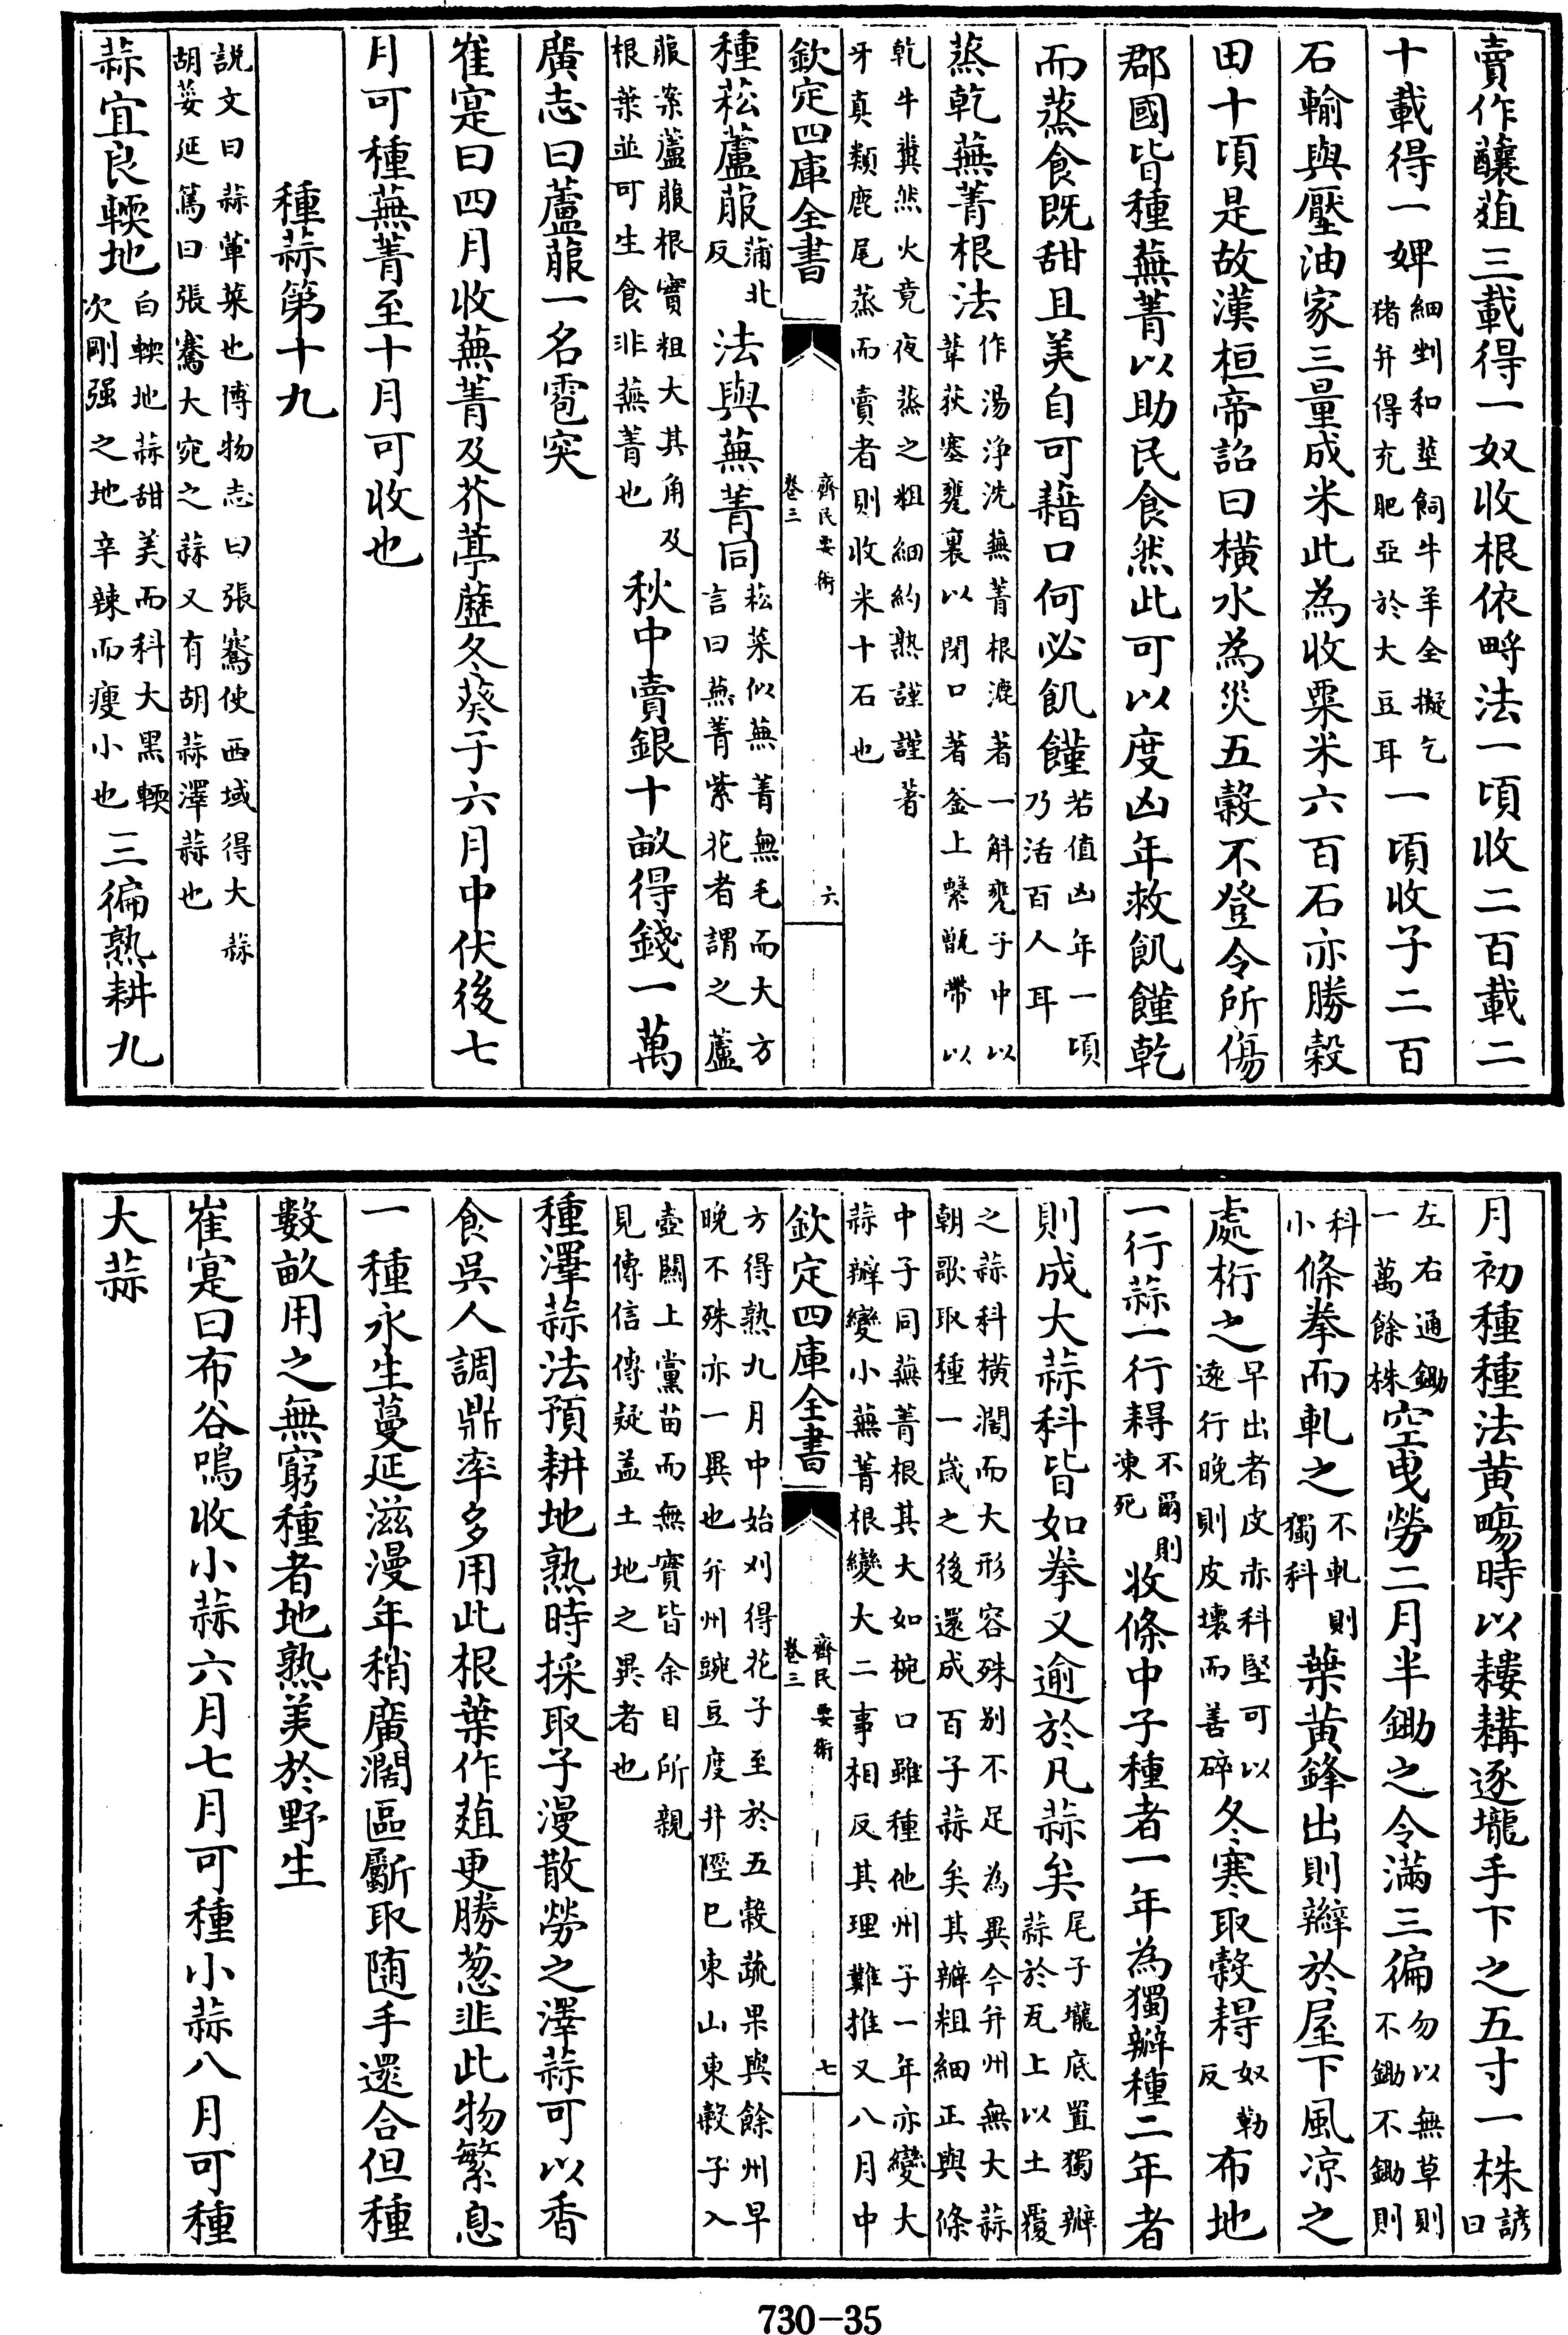 賣作釀葅三載得一奴收根依畤法一頃收二百載二
十載得一婢細剉和莖飼牛羊全擬乞猪并得充肥亞於大豆耳一頃收子二百
石輸與壓油家三量成米此為收粟米六百石亦勝穀
田十頃是故漢桓帝詔曰橫水為災五穀不登令所傷
郡國皆種蕪菁以助民食然此可以度凶年救飢饉乾
而蒸食既甜且美自可藉口何必飢饉若值凶年一頃乃活百人耳
蒸乾蕪菁根法作湯浄洗蕪菁根漉著一斛甕子中以葦荻塞甕裏以閉口著釜上繫甑帶以
乾牛糞然火竟夜蒸之粗細約熟謹謹著牙真類鹿尾蒸而賣者則收米十石也
欽定四庫全書
齊民要術
卷三
六
種菘蘆菔蒲北反法與蕪菁同菘菜似蕪菁無毛而大方言曰蕪菁紫花者謂之蘆
菔案蘆菔根實粗大其角及根葉並可生食非蕪菁也秋中賣銀十畝得錢一萬
廣志曰蘆菔一名雹突
崔寔曰四月收蕪菁及芥葶藶冬葵子六月中伏後七
月可種蕪菁至十月可收也
種蒜第十九
説文曰蒜葷菜也博物志曰張騫使西域得大蒜胡荽延篤曰張騫大宛之蒜又有胡蒜澤蒜也
蒜宜良輭地白輭地蒜甜美而科大黑輭次剛强之地辛辣而瘦小也三徧熟耕九
月初種種法黄畼時以耬耩逐壠手下之五寸一株諺曰
左右通鋤一萬餘株空曳勞二月半鋤之令滿三徧勿以無草則不鋤不鋤則
科小條拳而軋之不軋則獨科葉黄鋒出則辮於屋下風凉之
處桁之早出者皮赤科堅可以遠行晩則皮壞而善碎冬寒取穀𥞩奴勒反布地
一行蒜一行𥞩不爾則凍死收條中子種者一年為獨瓣種二年者
則成大蒜科皆如拳又逾於凡蒜矣尾子壠底置獨瓣蒜於瓦上以土覆
之蒜科橫濶而大形容殊别不足為異今并州無大蒜朝歌取種一歲之後還成百子蒜矣其瓣粗細正與條
中子同蕪菁根其大如椀口雖種他州子一年亦變大蒜瓣變小蕪菁根變大二事相反其理難推又八月中
欽定四庫全書
齊民要術
卷三
七
方得熟九月中始刈得花子至於五穀蔬果與餘州早晚不殊亦一異也并州豌豆度井陘已東山東穀子入
壺關上黨苗而無實皆余目所親見傳信傳疑盖土地之異者也
種澤蒜法預耕地熟時採取子漫散勞之澤蒜可以香
食吳人調鼎率多用此根葉作葅更勝葱韭此物繁息
一種永生蔓延滋漫年稍廣濶區斸取随手還合但種
數畝用之無窮種者地熟美於野生
崔寔曰布谷鳴收小蒜六月七月可種小蒜八月可種
大蒜
730-35